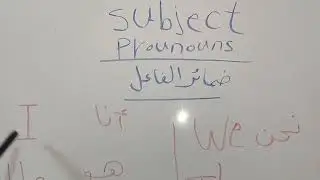 Subject
Prounouns
ضمائر الفاعل
I أنا
We نحن
هو